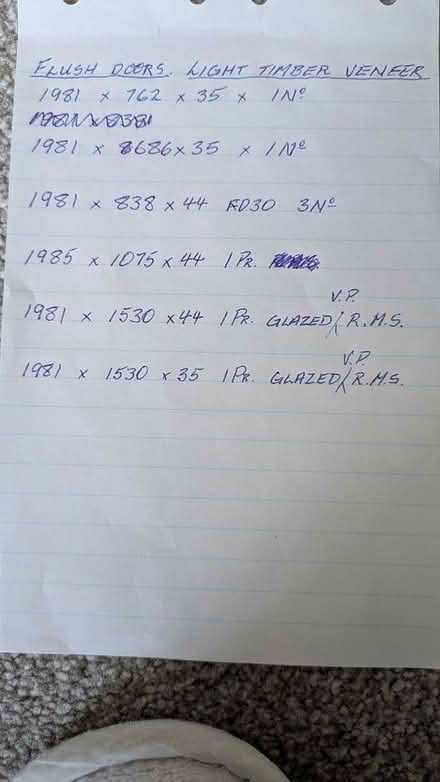 FLUSH DOORS. LIGHT TIMBER VENEER
1981 x 762 x 35 x 1 Nº
1981 x 838
1981 x 686 x 35 x 1 Nº
1981 x 838 x 44 FD30 3 Nº
1985 x 1075 x 44 1 PR.
V.P.
1981 x 1530 x 44 1 PR. GLAZED / R.M.S.
V.P.
1981 x 1530 x 35 1 PR. GLAZED / R.M.S.